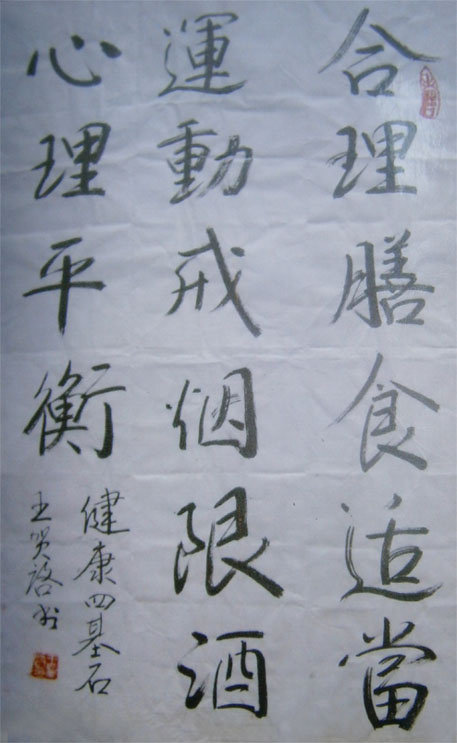 合理膳食适當
運動戒烟限酒
心理平衡
健康四基石